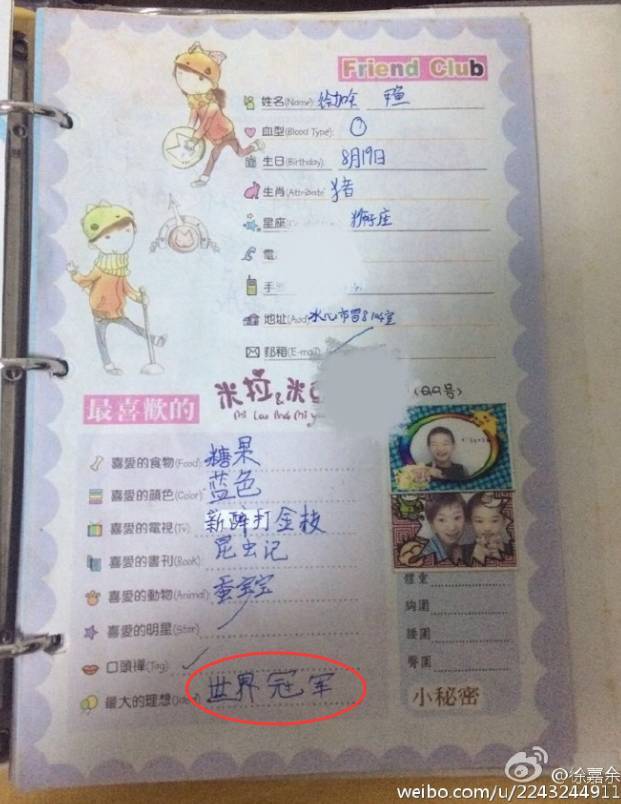 Friend Club
姓名(Name)
血型(Blood Type): O
生日(Birthday): 8月19日
生肖 猪
星座 狮子座
電
手
地址(Add)
郵箱(E-mail)
(QQ号)
最喜歡的 米拉&米
喜愛的食物(Food) 糖果
喜愛的顏色(Color) 蓝色
喜愛的電視(TV) 新醉打金枝
喜愛的書刊(Book) 昆虫记
喜愛的動物(Animal) 蚕宝宝
喜愛的明星(Star)
口頭禪(Tag)
最大的理想 世界冠军
體重
胸圍
腰圍
臀圍
小秘密
@徐嘉余
weibo.com/u/2243244911